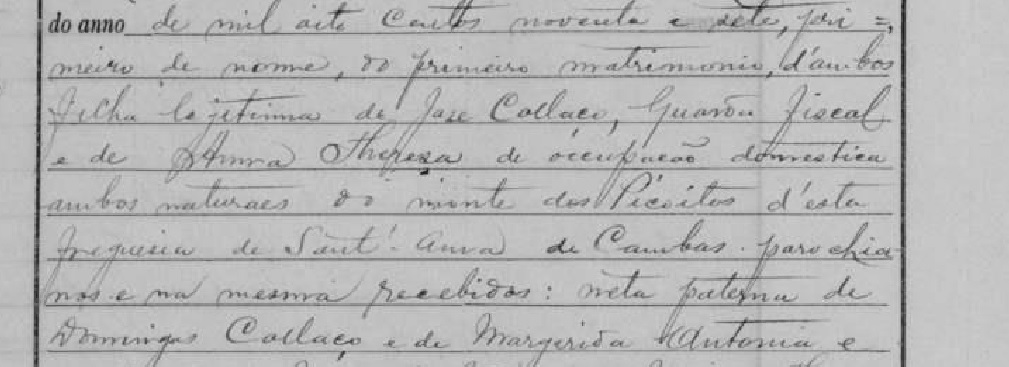 do anno de mil oito centos noventa e sete, pri=
meiro de nome, do primeiro matrimonio, d'ambos
filha legitima de Jose Collaço, Guarda fiscal
e de Anna Thereza de occupação domestica
ambos naturaes do monte dos Picoitos d'esta
freguesia de Sant'Anna de Cambas. parochia-
nos e na mesma recebidos: neta paterna de
Domingos Collaço e de Margarida Antonia e